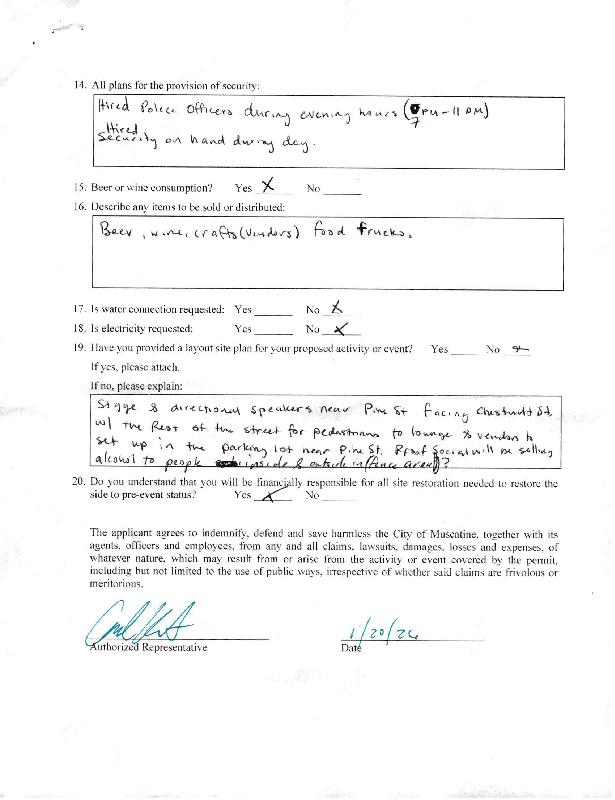 14. All plans for the provision of security:
Hired Police Officers during evening hours (7PM-11PM)
Hired
security on hand during day.
15. Beer or wine consumption? Yes X No
16. Describe any items to be sold or distributed:
Beer, wine, crafts (Vendors) food trucks.
17. Is water connection requested: Yes No X
18. Is electricity requested: Yes No X
19. Have you provided a layout site plan for your proposed activity or event? Yes No X
If yes, please attach.
If no, please explain:
Stage & directional speakers near Pine St facing Chestnut St
w/ the Rest of the street for pedestrians to lounge & vendors to
set up in the parking lot near Pine St. Proof Social will be selling
alcohol to people inside & outside in (fence area)?
20. Do you understand that you will be financially responsible for all site restoration needed to restore the
side to pre-event status? Yes X No
The applicant agrees to indemnify, defend and save harmless the City of Muscatine, together with its
agents, officers and employees, from any and all claims, lawsuits, damages, losses and expenses, of
whatever nature, which may result from or arise from the activity or event covered by the permit,
including but not limited to the use of public ways, irrespective of whether said claims are frivolous or
meritorious.
1/20/26
Authorized Representative Date